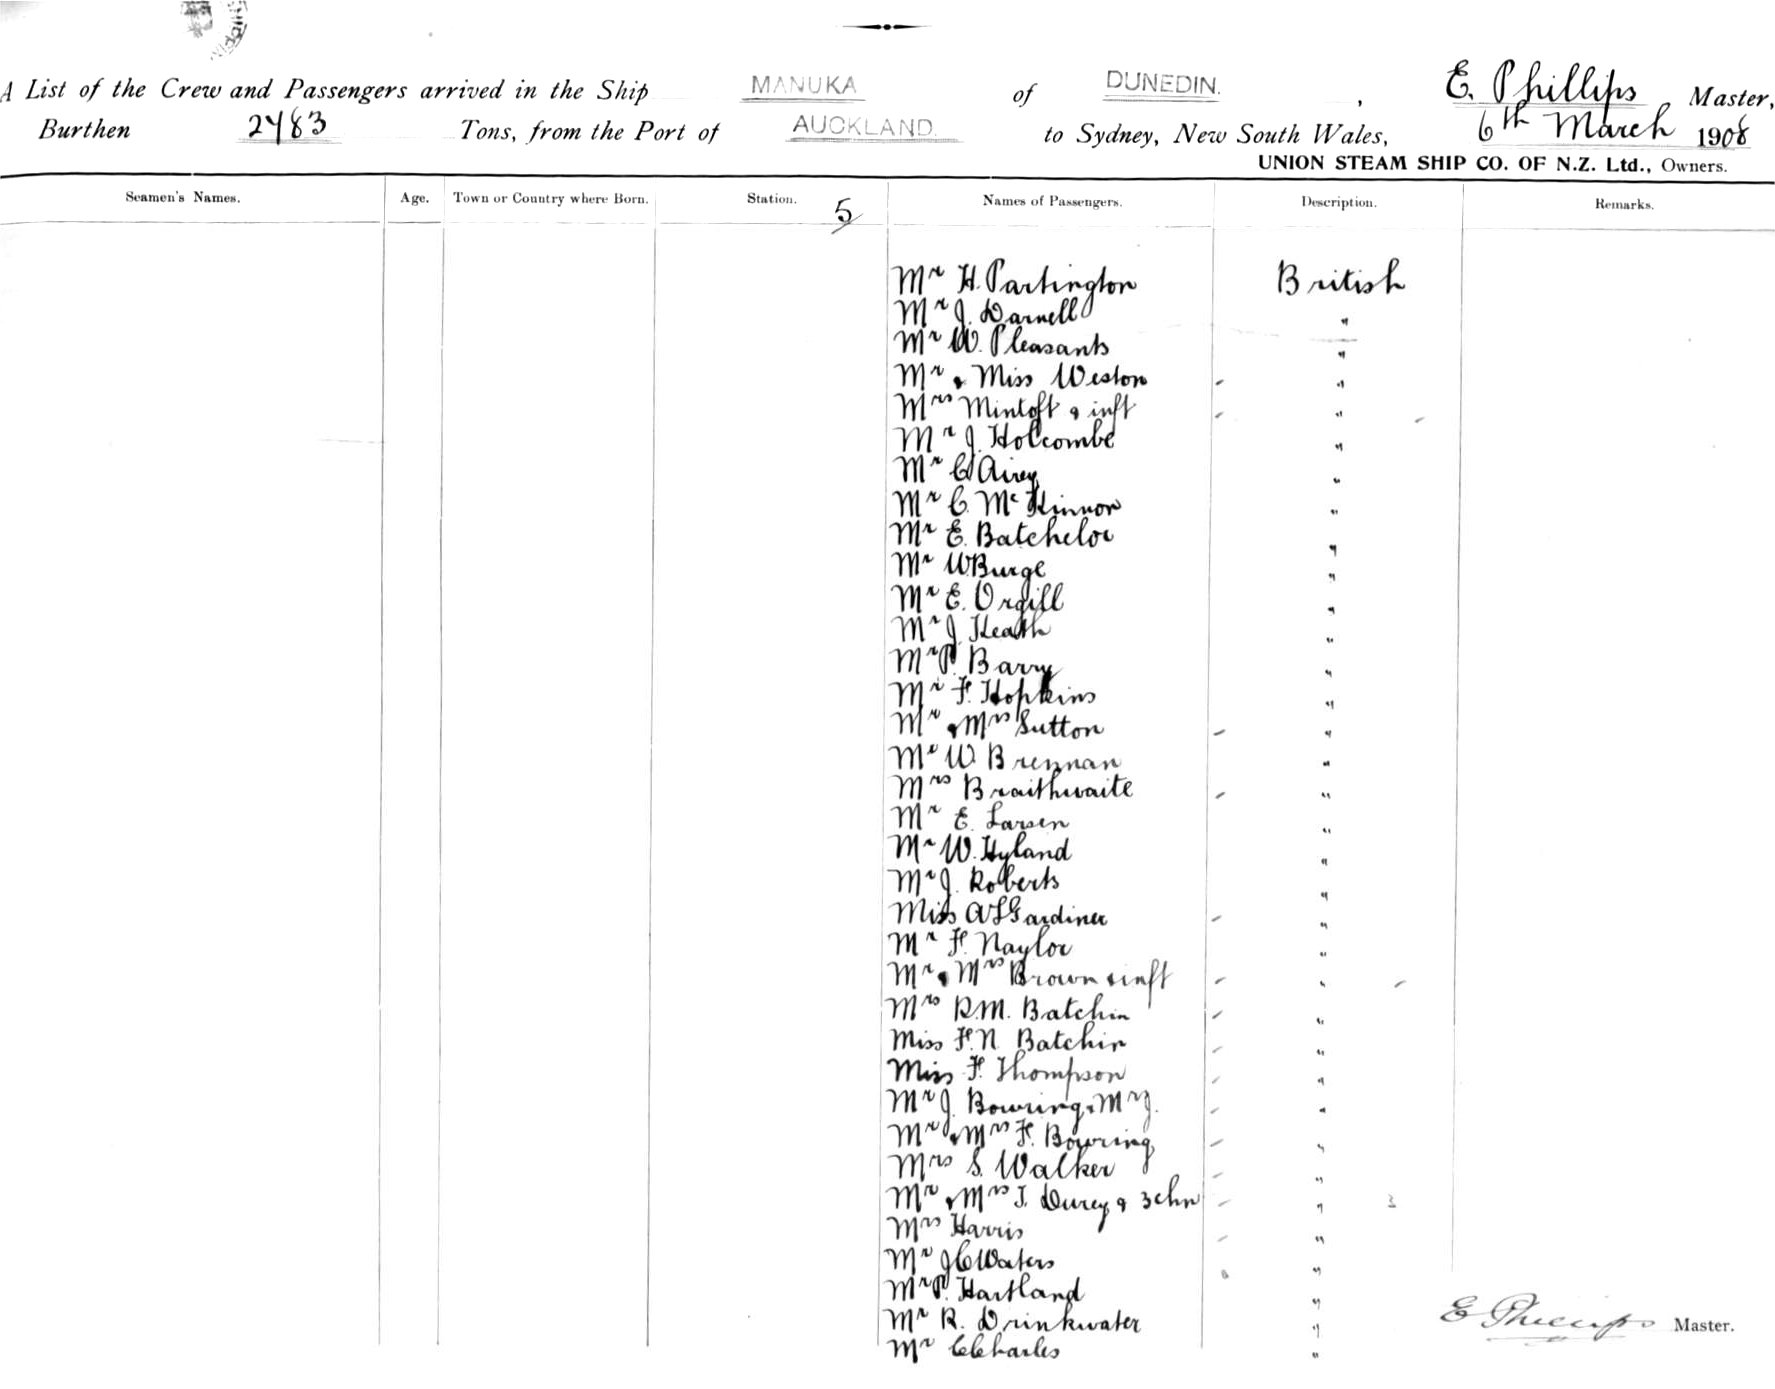 A List of the Crew and Passengers arrived in the Ship MANUKA of DUNEDIN. , E. Phillips Master,
Burthen 2483 Tons, from the Port of AUCKLAND. to Sydney, New South Wales, 6th March 1908
UNION STEAM SHIP CO. OF N.Z. Ltd., Owners.
Seamen's Names. Age. Town or Country where Born. Station. 5 Names of Passengers. Description. Remarks.
Mr H. Partington British
Mr J. Darnell "
Mr W. Pleasants "
Mr & Miss Weston "
Mrs Mintoft & inft "
Mr J. Holcombe "
Mr C Airey "
Mr C. McKinnon "
Mr E. Batchelor "
Mr W Burge "
Mr E. Orgill "
Mr J. Heath "
Mr P. Barry "
Mr F. Hopkins "
Mr & Mrs Sutton "
Mr W. Brennan "
Mrs Braithwaite "
Mr E. Larsen "
Mr W. Hyland "
Mr J. Roberts "
Miss A L Gardiner "
Mr F. Naylor "
Mr & Mrs Brown & inft "
Mrs R.M. Batchin "
Miss F.N. Batchin "
Miss F. Thompson "
Mr J. Bowring & Mr J. "
Mr & Mrs F. Bowring "
Mrs S. Walker "
Mr & Mrs J. Durey & 3 chn " 3
Mrs Harris "
Mr J C Waters "
Mr P. Hartland "
Mr R. Drinkwater " E Phillips Master.
Mr C Charles "